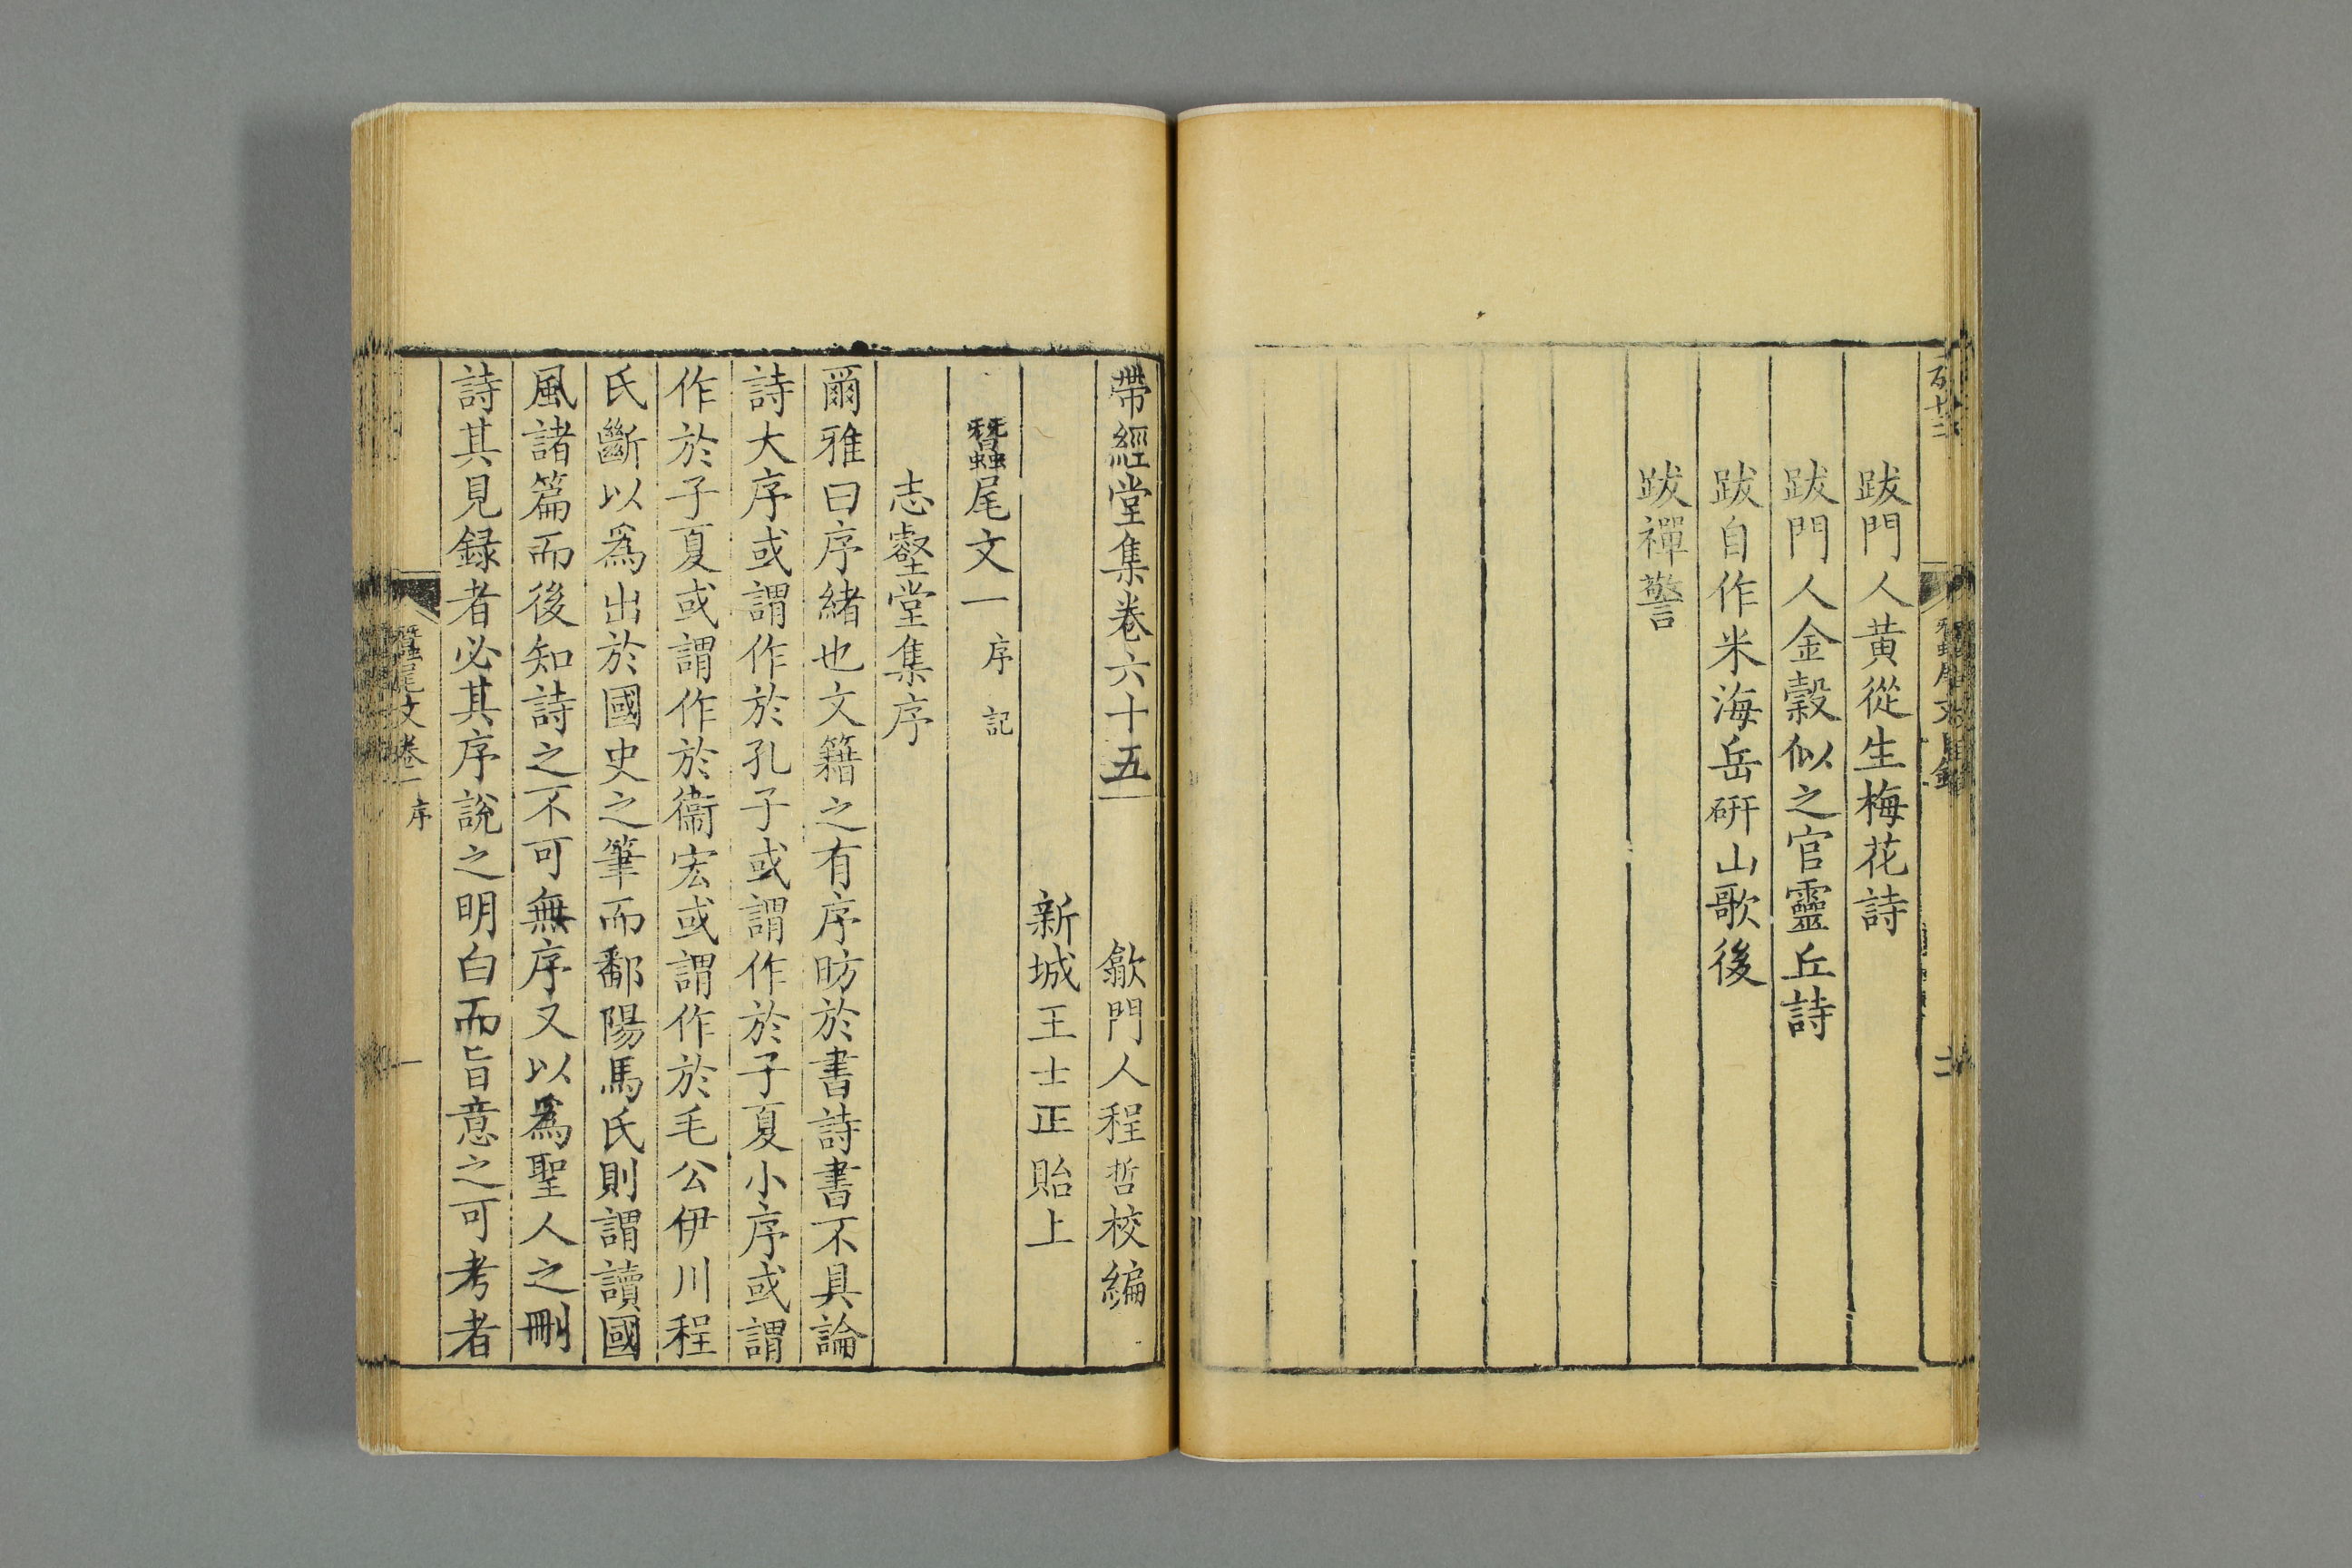 跋門人黄從生梅花詩
跋門人金穀似之官靈丘詩
跋自作米海岳硏山歌後
跋禪警
帶經堂集卷六十五 歙門人程哲校編
新城王士正貽上
蠶尾文一 序 記
志壑堂集序
爾雅曰序緒也文籍之有序昉於書詩書不具論
詩大序或謂作於孔子或謂作於子夏小序或謂
作於子夏或謂作於衞宏或謂作於毛公伊川程
氏斷以爲出於國史之筆而鄱陽馬氏則謂讀國
風諸篇而後知詩之不可無序又以爲聖人之刪
詩其見録者必其序說之明白而旨意之可考者
蠶尾文卷一 序 一